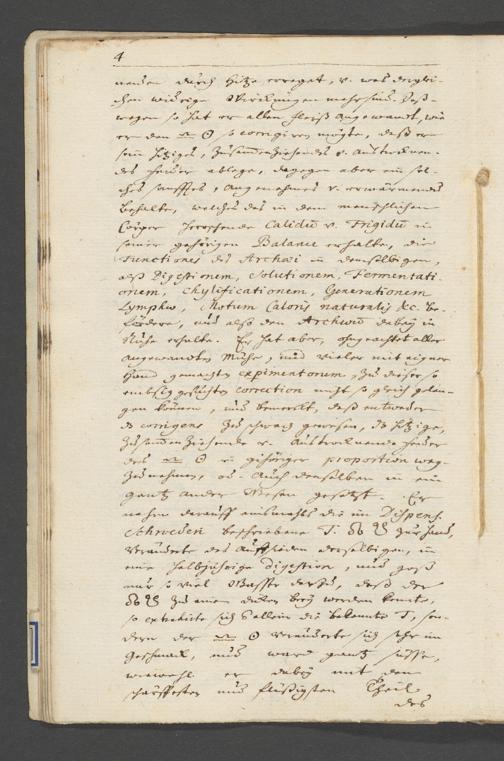 4
durch Hitze erreget, v. was derglei-
chen widrige Wirckungen mehr sind. Deß-
wegen so hat er allen fleiß angewandt, wie
er den 🜔 so corrigiren mögte, daß er
sein hitziges, Zusammenziehendes v. austrocknen-
des feuer ablege, dagegen aber ein sol-
ches sanfftes, angenehmes v. erwärmendes
behalte, welches das in dem menschlichen
Cörper Calidum v. Frigidum in
seiner gehörigen Balance erhalte, die
Functiones des Archaei in demselbigen,
alß Digestionem, Solutionem, Fermentati-
onem, Chylificationem, Generationem
Lymphae, Motum Caloris naturalis &c. be-
fördere, und alß den Archaeum dabey in
Ruhe erhalte. Er hat aber, ohngeachtet aller
angewandten Mühe, und vieler mit eigner
Hand gemachten experimentorum, zu dieser so
correction nicht so gleich gelan-
gen können, und bemerckt, daß entweder
das corrigens zu schwach gewesen, das hitzige,
Zusammenziehende v. austrocknende feuer
des in gehöriger proportion weg-
zunehmen, od. auch denselben in ein
gantz ander Wesen gesetzt. Er
nahm darauff die im Dispens.
Schroederi beschriebene T. zur Hand,
veränderte das derselbigen, in
eine halbjährige Digestion, und goß
nur so viel Wasser darzu, daß der
zu einem dicken brey werden konte,
so extrahirte sich allein die bekannte T, son-
dern der veränderte sich sehr im
Geschmack, und ward gantz süsse,
wiewohl er dabey mit dem
schärffesten und flüßigsten Theil
des